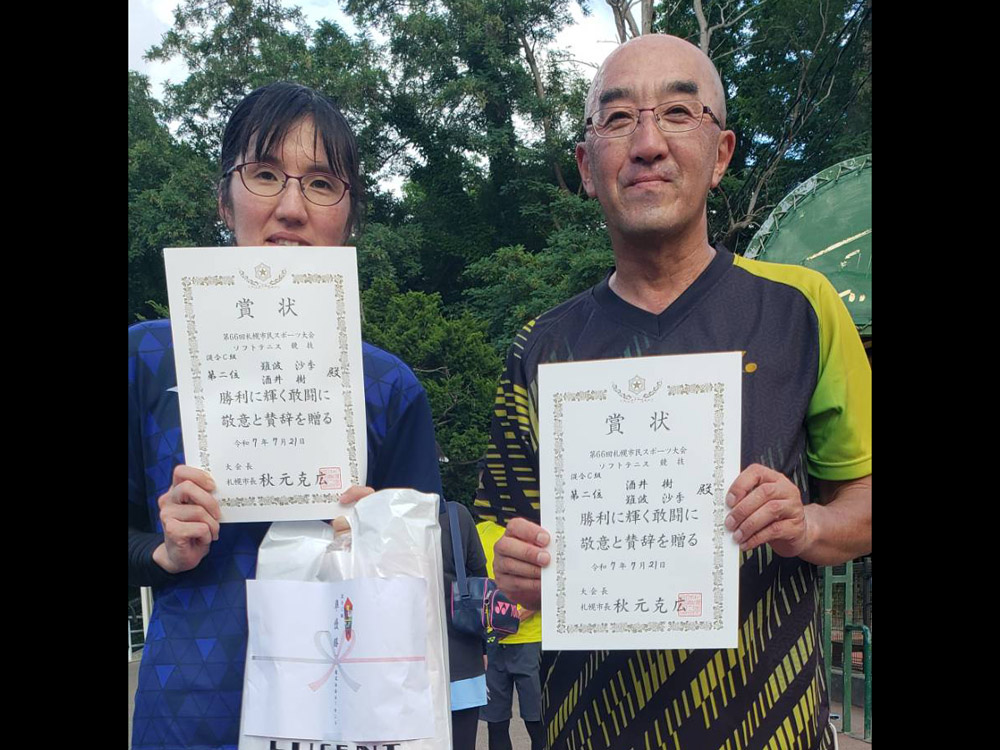 賞状
第66回札幌市民スポーツ大会
ソフトテニス 競技
混合C組
第二位
難波 沙季
酒井 樹
殿
勝利に輝く敢闘に
敬意と賛辞を贈る
令和7年7月21日
大会長
札幌市長 秋元克広
賞状
第66回札幌市民スポーツ大会
ソフトテニス 競技
混合C組
第二位
酒井 樹
難波 沙季
殿
勝利に輝く敢闘に
敬意と賛辞を贈る
令和7年7月21日
大会長
札幌市長 秋元克広
準優勝
YONEX
LUCENT